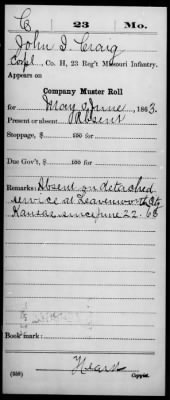 C 23 Mo.
John I. Craig
Corpl., Co. H, 23 Reg't Missouri Infantry.
Appears on
Company Muster Roll
for May & June, 1863.
Present or absent Absent
Stoppage, $ 100 for
Due Gov't, $ 100 for
Remarks: Absent on detached
service at Leavenworth City
Kansas since June 22. 63
Book mark:
Heard
(358) Copyist.